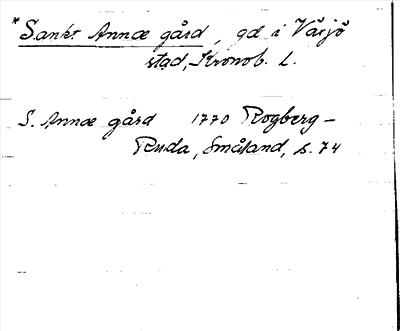 *Sankt Annæ gård, gd i Växjö
stad, Kronob. L.
S. Annæ gård 1770 Rogberg-
Ruda, Småland, s. 74